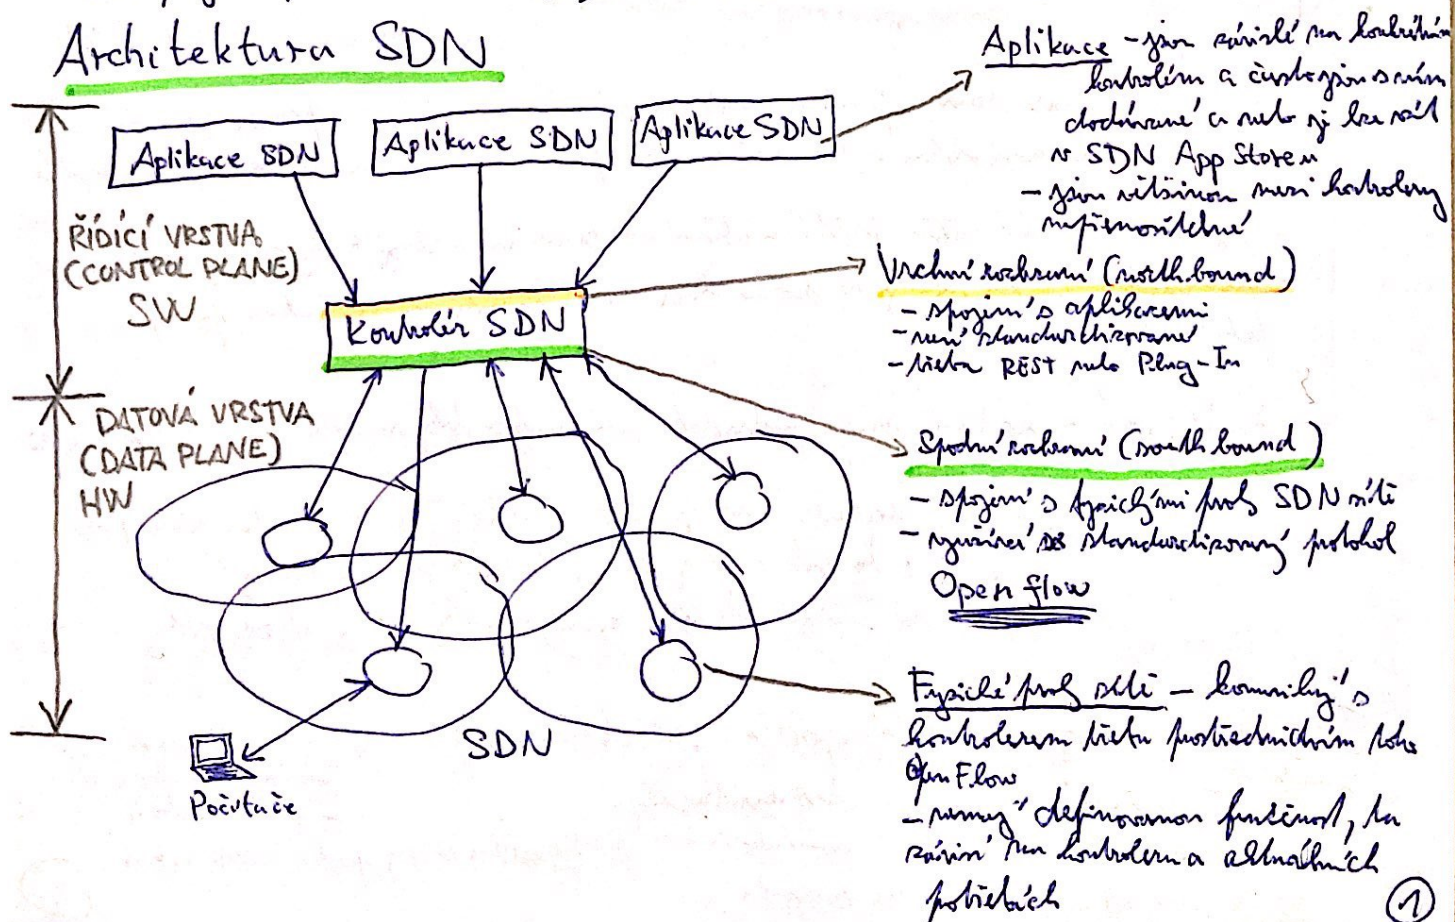 Architektura SDN
Aplikace SDN
Aplikace SDN
Aplikace SDN
ŘÍDÍCÍ VRSTVA
(CONTROL PLANE)
SW
Kontrolér SDN
DATOVÁ VRSTVA
(DATA PLANE)
HW
SDN
Počítače
Aplikace – jsou závislé na konkrétním
kontroléru a často jsou s ním
dodávané a nebo je lze vzít
v SDN App Storeu
– jsou většinou mezi kontrolery
nepřenositelné
Vrchní rozhraní (northbound)
– spojení s aplikacemi
– není standardizované
– třeba REST nebo Plug-In
Spodní rozhraní (southbound)
– spojení s fyzickými prvky SDN sítě
– využívá se standardizovaný protokol
Openflow
Fyzické prvky sítě – komunikují s
kontrolerem třeba prostřednictvím toho
OpenFlow
– nemají definovanou funkčnost, ta
závisí na kontroleru a aktuálních
potřebách
1